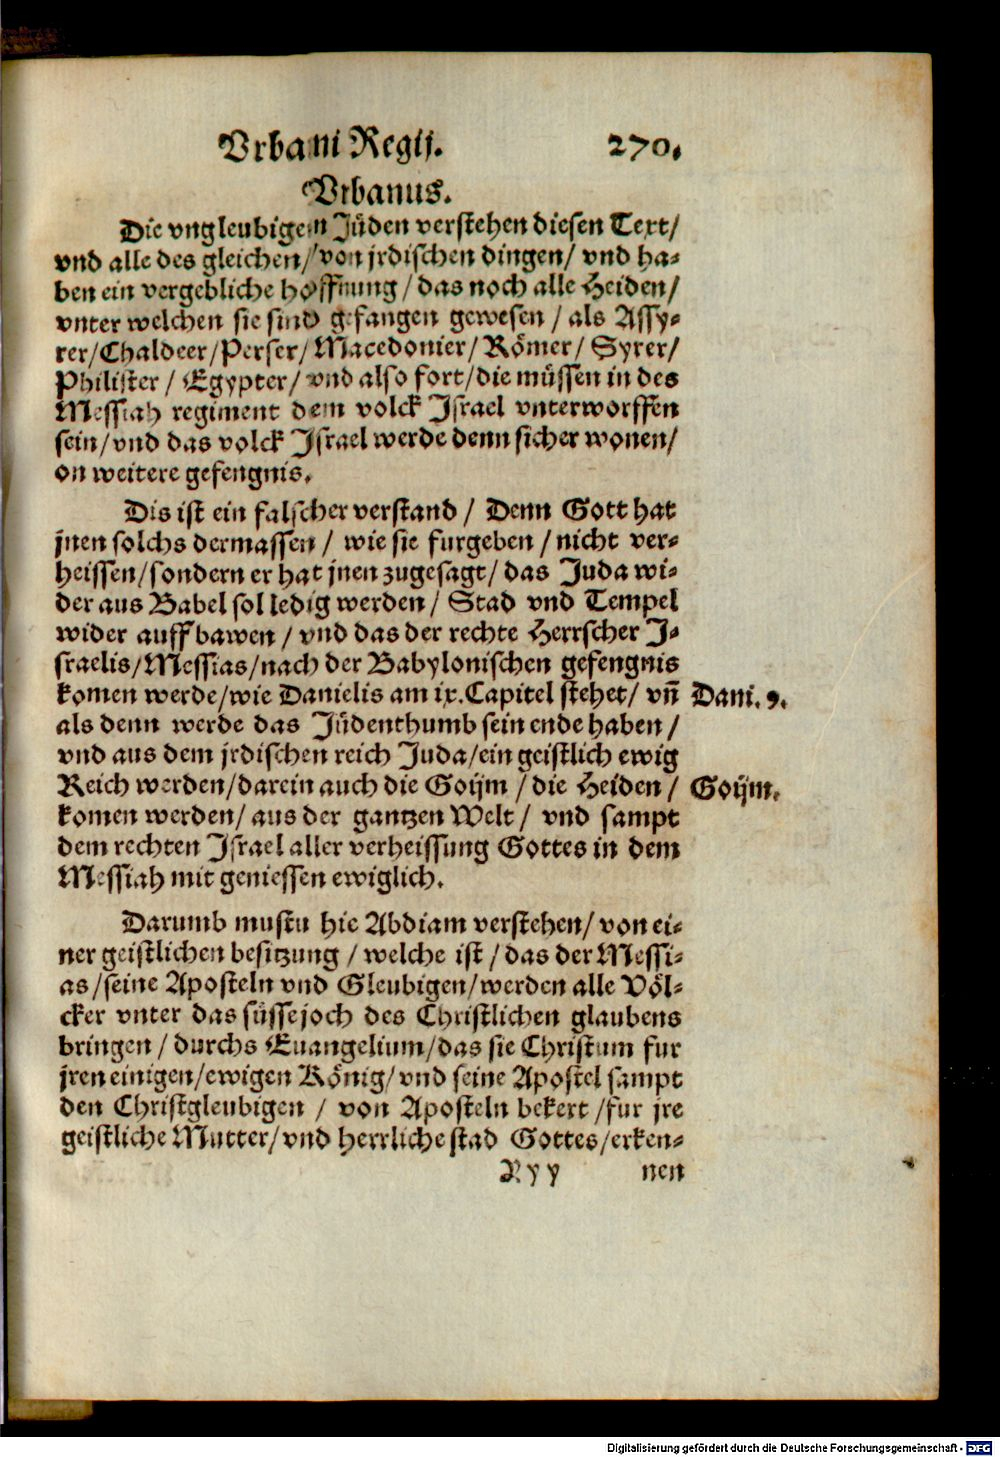 Vrbani Regij. 270.
Vrbanus.
Die vngleubigen Jüden verstehen diesen Text/
vnd alle des gleichen/ von jrdischen dingen/ vnd ha-
ben ein vergebliche hoffnung/ das noch alle Heiden/
vnter welchen sie sind gefangen gewesen/ als Assy-
rer/Chaldeer/Perser/Macedonier/Römer/ Syrer/
Philister/ Egypter/ vnd also fort/die müssen in des
Messiah regiment dem volck Jsrael vnterworffen
sein/vnd das volck Jsrael werde denn sicher wonen/
on weitere gefengnis.
Dis ist ein falscher verstand/ Denn Gott hat
jnen solchs dermassen/ wie sie furgeben/nicht ver-
heissen/sondern er hat jnen zugesagt/ das Juda wi-
der aus Babel sol ledig werden/ Stad vnd Tempel
wider auff bawen/vnd das der rechte Herrscher J-
sraelis/Messias/nach der Babylonischen gefengnis
komen werde/wie Danielis am ix.Capitel stehet/ vñ Dani. 9.
als denn werde das Jüdenthumb sein ende haben/
vnd aus dem jrdischen reich Juda/ein geistlich ewig
Reich werden/darein auch die Goijm/die Heiden/ Goijm.
komen werden/ aus der gantzen Welt/ vnd sampt
dem rechten Jsrael aller verheissung Gottes in dem
Messiah mit geniessen ewiglich.
Darumb mustu hie Abdiam verstehen/ von ei-
ner geistlichen besitzung/welche ist/das der Messi-
as/seine Aposteln vnd Gleubigen/werden alle Völ-
cker vnter das süsse joch des Christlichen glaubens
bringen/ durchs Euangelium/das sie Christum fur
jren einigen/ewigen König/vnd seine Apostel sampt
den Christgleubigen/ von Aposteln bekert/fur jre
geistliche Mutter/vnd herrliche stad Gottes/erken-
Ryy nen
Digitalisierung gefördert durch die Deutsche Forschungsgemeinschaft - DFG